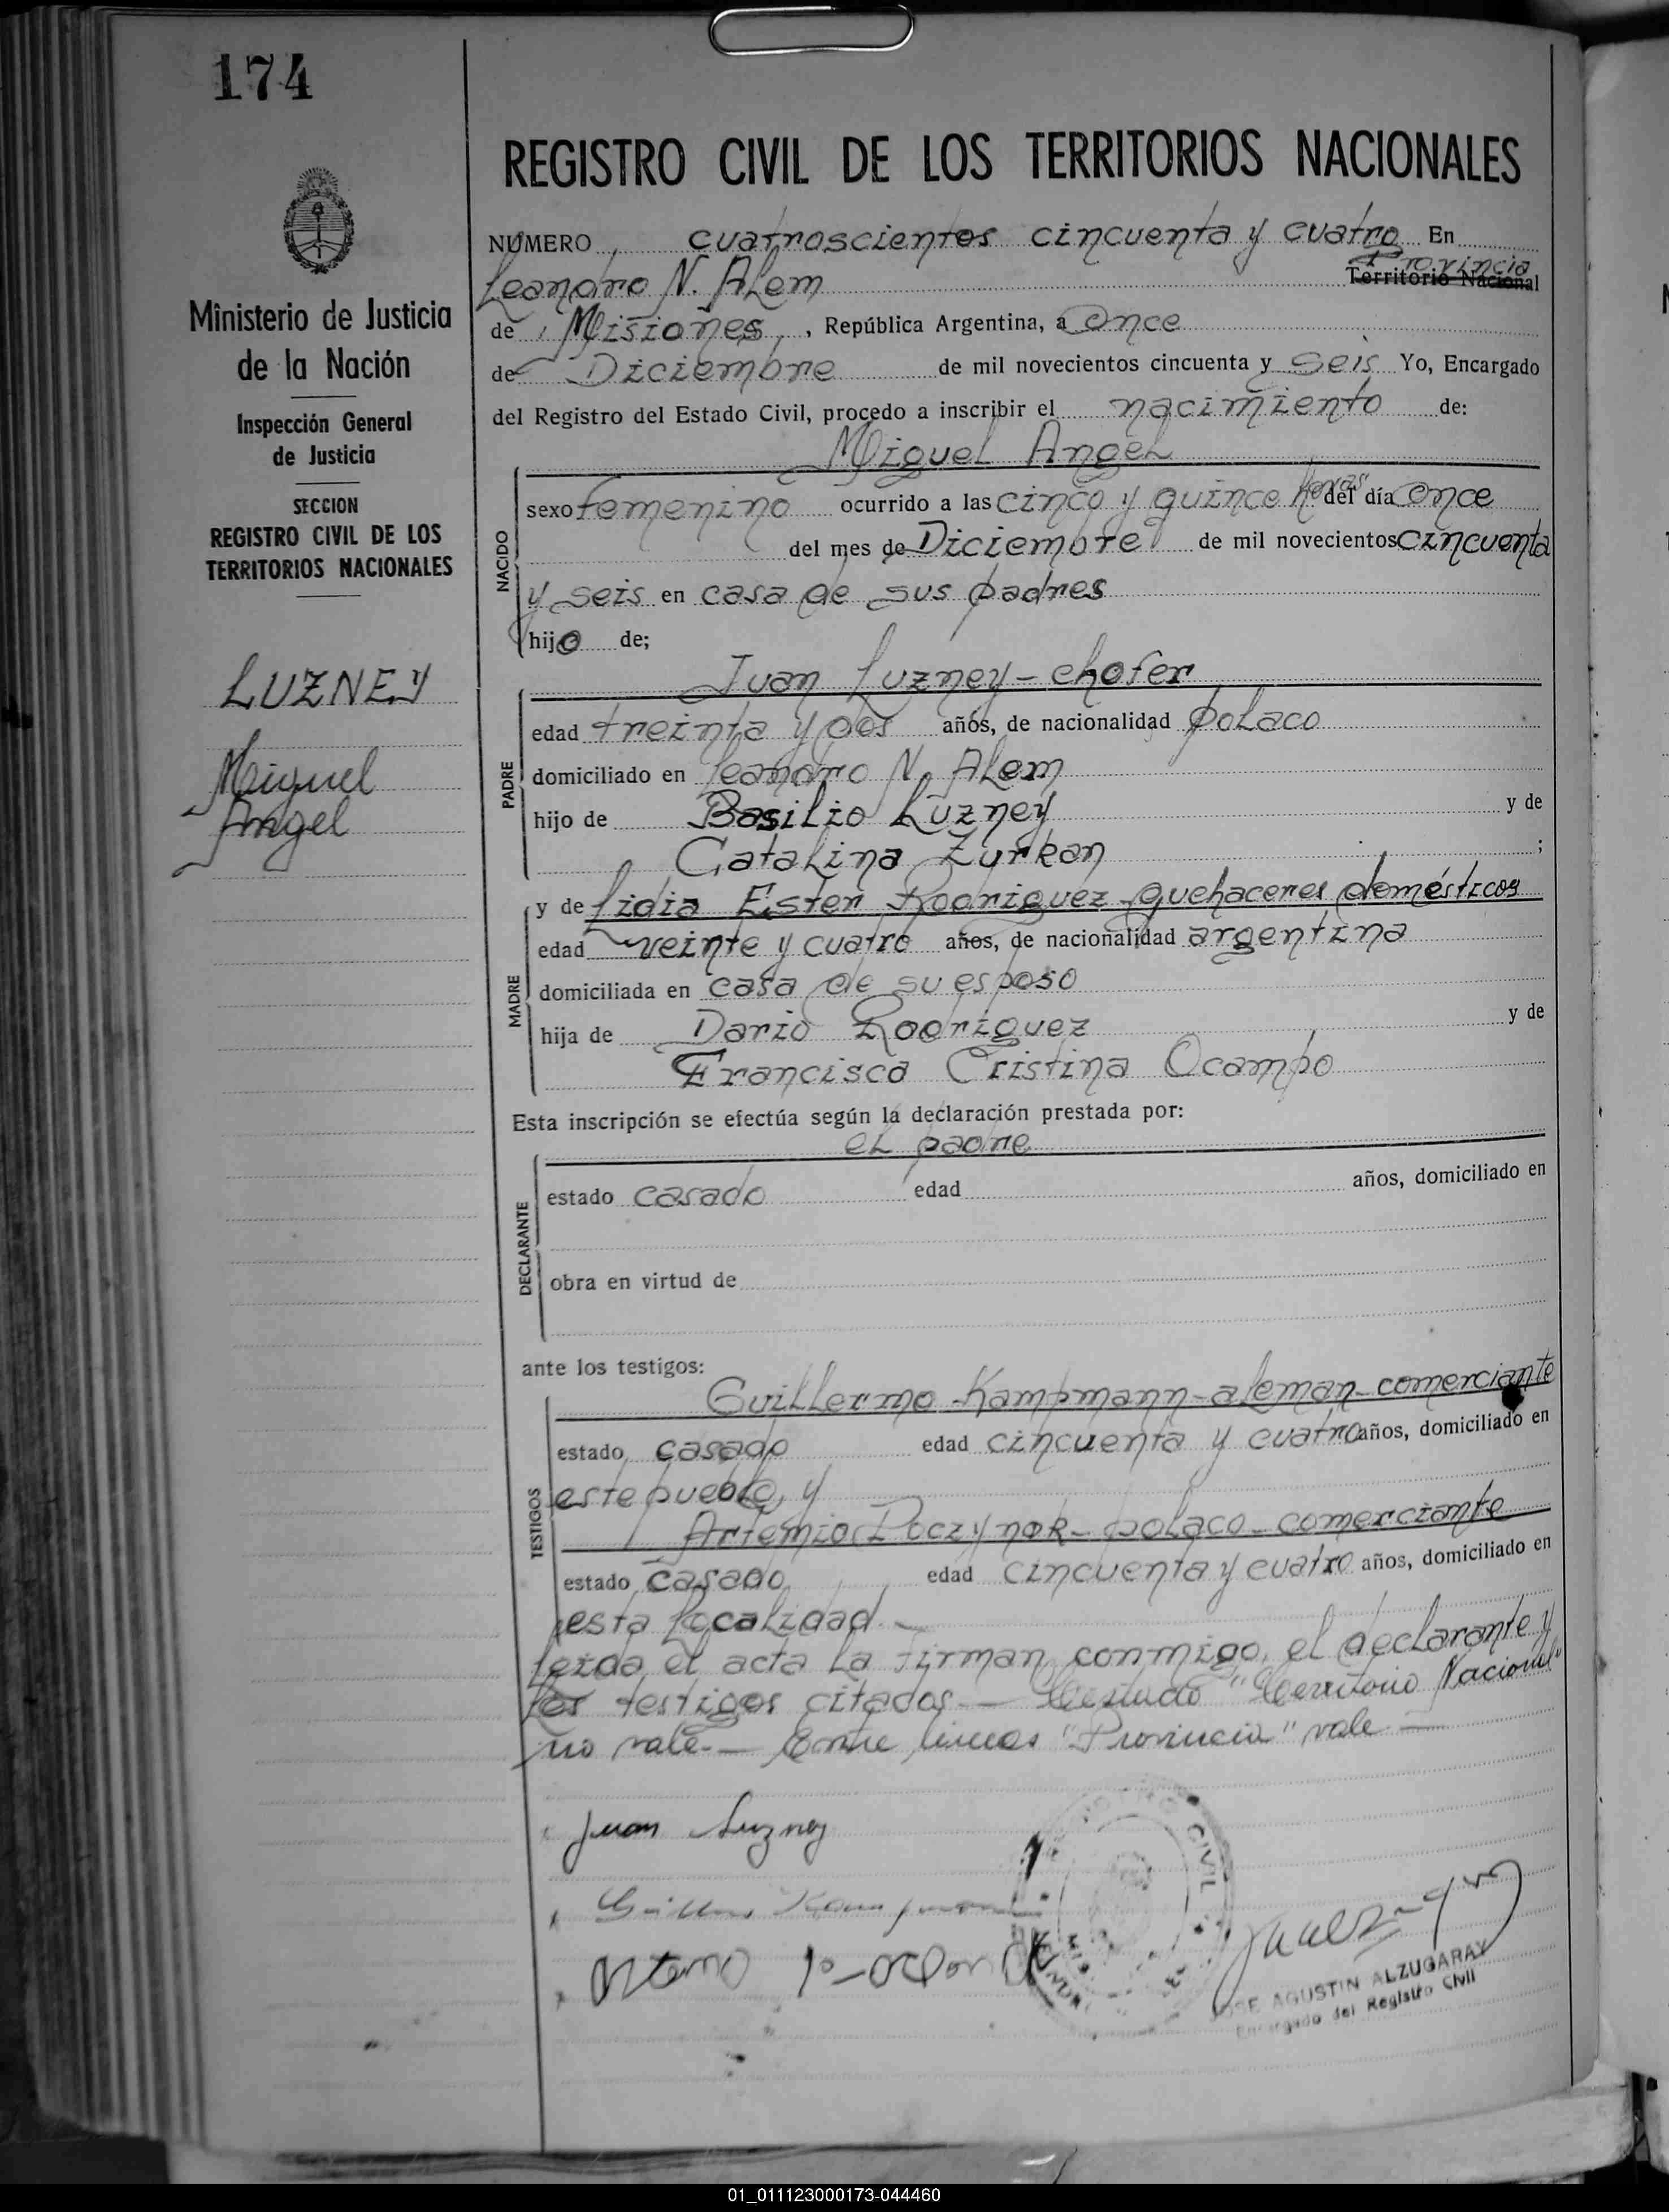 174
REGISTRO CIVIL DE LOS TERRITORIOS NACIONALES
Ministerio de Justicia
de la Nación
Inspección General
de Justicia
SECCION
REGISTRO CIVIL DE LOS
TERRITORIOS NACIONALES
LUZNEY
Miguel
Angel
NUMERO cuatroscientos cincuenta y cuatro En
Provincia
Leandro N. Alem Territorio Nacional
de Misiones, República Argentina, a once
de Diciembre de mil novecientos cincuenta y seis Yo, Encargado
del Registro del Estado Civil, procedo a inscribir el nacimiento de:
Miguel Angel
NACIDO
sexo femenino ocurrido a las cinco y quince horas del día once
del mes de Diciembre de mil novecientos cincuenta
y seis en casa de sus padres
hijo de;
Juan Luzney - chofer
PADRE
edad treinta y dos años, de nacionalidad polaco
domiciliado en Leandro N. Alem
hijo de Basilio Luzney y de
Catalina Zurkan ;
MADRE
y de Lidia Ester Rodriguez - quehaceres domésticos
edad veinte y cuatro años, de nacionalidad argentina
domiciliada en casa de su esposo
hija de Dario Rodriguez y de
Francisca Cristina Ocampo
Esta inscripción se efectúa según la declaración prestada por:
el padre
DECLARANTE
estado casado edad años, domiciliado en
obra en virtud de
ante los testigos:
Guillermo Kampmann - aleman - comerciante
TESTIGOS
estado casado edad cincuenta y cuatro años, domiciliado en
este pueblo, y
Artemio Poczynok - polaco - comerciante
estado casado edad cincuenta y cuatro años, domiciliado en
esta localidad.-
leida el acta la firman conmigo, el declarante y
los testigos citados.- Testado "Territorio Nacional"
no vale.- Entre lineas "Provincia" vale.-
Juan Luzney
CIVIL
JOSE AGUSTIN ALZUGARAY
Encargado del Registro Civil
01_011123000173-044460